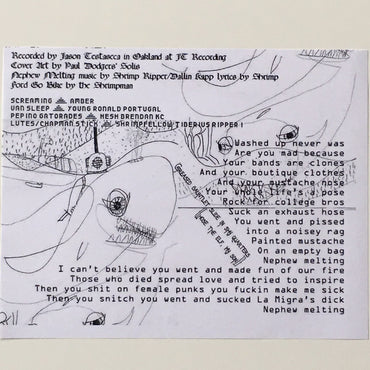 Recorded by Jason Testasecca in Oakland at JT Recording
Cover Art by Paul Dodgers' Solis
Nephew Melting music by Shrimp Ripper/Dallin Kapp lyrics by Shrimp
Ford Go Bike by the Shrimpman
SCREAMING AMBER
VAN SLEEP YOUNG RONALD PORTUGAL
PEPINO GATORADES HESH BRENDAN KC
LUTES/CHAPMAN STICK SHRIMPFELLOW TIBERIUS RIPPER I
Washed up never was
Are you mad because
Your bands are clones
And your boutique clothes
And your mustache nose
Your whole life's a pose
Rock for college bros
Suck an exhaust hose
You went and pissed
into a noisey rag
Painted mustache
On an empty bag
Nephew melting
I can't believe you went and made fun of our fire
Those who died spread love and tried to inspire
Then you shit on female punks you fuckin make me sick
Then you snitch you went and sucked La Migra's dick
Nephew melting